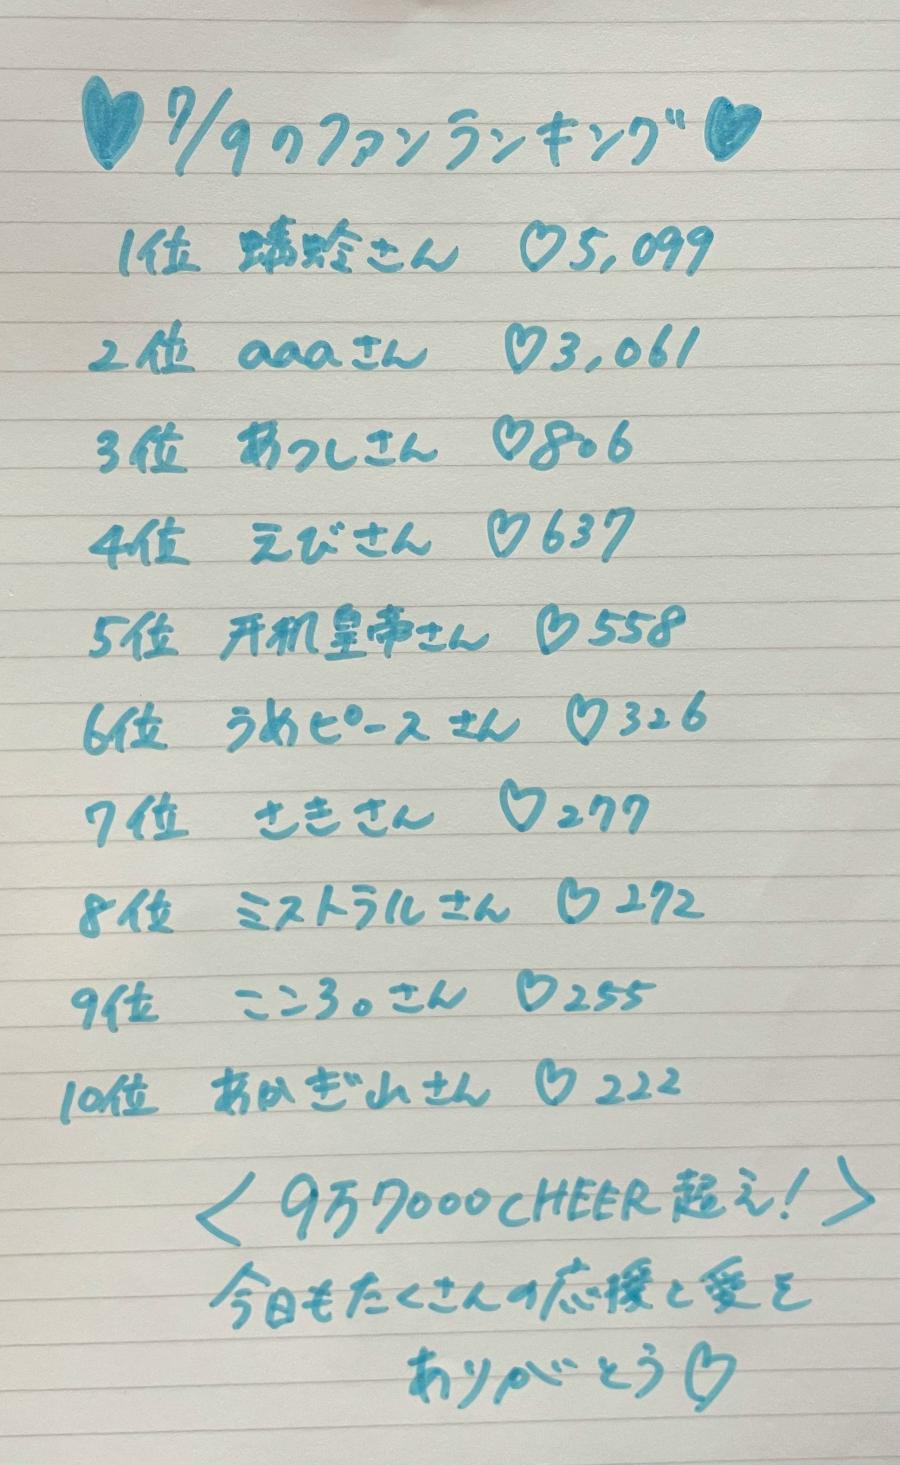 ♥7/9のファンランキング♥
1位 さん ♡5,099
2位 aaaさん ♡3,061
3位 あつしさん ♡806
4位 えびさん ♡637
5位 开机皇帝さん ♡558
6位 うめピースさん ♡326
7位 さきさん ♡277
8位 ミストラルさん ♡272
9位 こころ。さん ♡255
10位 あかぎ山さん ♡222
<9万7000CHEER超え!>
今日もたくさんの応援と愛を
ありがとう♡